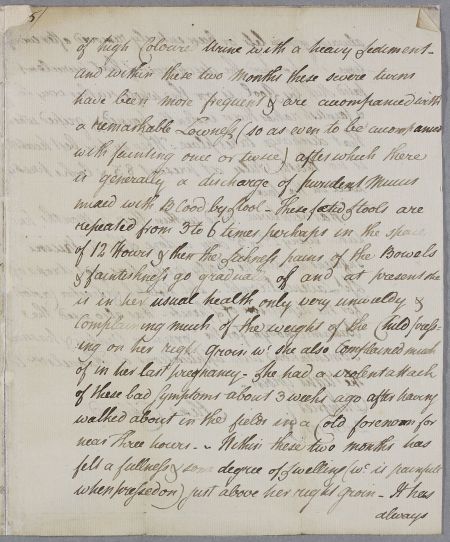 5
of high Colourd Urine with a heavy Sediment -
and within these two Months these severe turns
have been more frequent & are accompanied with
a remarkable Lowness (so as even to be accompanied
with fainting once or twice) after which there
is generally a discharge of purulent Mucus
mixed with Blood by stool - These fœtid stools are
repeated from 3 to 6 times perhaps in the space
of 12 Hours & then the Sickness pains of the Bowels
& faintishness go gradualy of and at present she
is in her usual health only very unwieldy &
Complaining much of the weight of the Child press-
ing on her right Groin wc. she also Complained much
of in her last pregnancy - She had a violent attack
of these bad Symptoms about 3 weeks ago after having
walked about in the fields in a Cold forenoon for
near three hours. - Within these two months has
felt a fullness & some degree of Swelling (wc. is painfull
when pressed on) just above her right groin - It has
always